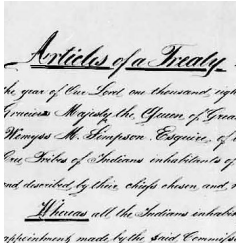 Articles of a Treaty
the year of Our Lord one thousand, eigh
Gracious Majesty the Queen of Grea
Wemyss M. Simpson. Esquire, of
Cree Tribes of Indians inhabitants of
and described by their chiefs chosen and
Whereas all the Indians inhabi
appointment made by the said Commiss